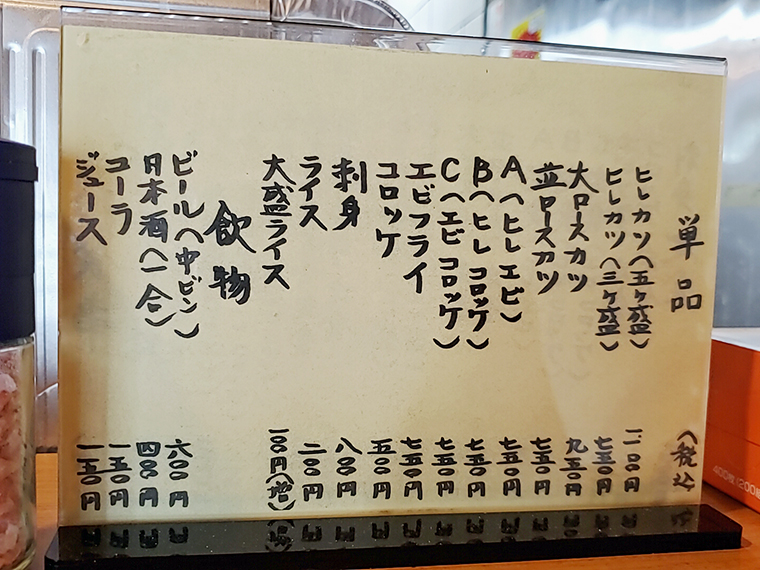 単品 (税込
ヒレカツ(五ヶ盛) 一一〇〇円
ヒレカツ(三ヶ盛) 七五〇円
大ロースカツ 九五〇円
並ロースカツ 七五〇円
A(ヒレ エビ) 七五〇円
B(ヒレ コロッケ) 七五〇円
C(エビ コロッケ) 七五〇円
エビフライ 七五〇円
コロッケ 五〇〇円
刺身 八〇〇円
ライス 二〇〇円
大盛ライス 一〇〇円(増)
飲物
ビール(中ビン) 六〇〇円
日本酒(一合) 四〇〇円
コーラ 一五〇円
ジュース 一五〇円
400枚(200